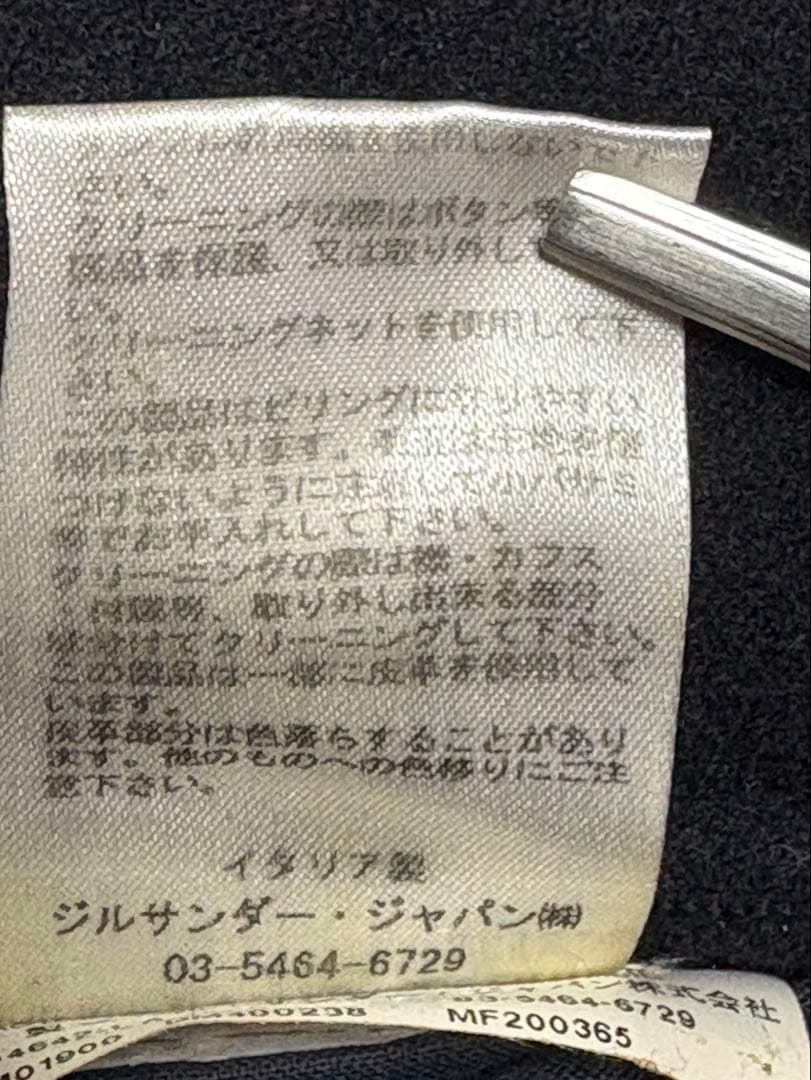 さい。
クリーニングの際はボタン等
属品を保護、又は取り外して
い。
クリーニングネットを使用して下
さい。
この製品はピリングになりやすい
特性があります。
つけないように注意して
でお手入れして下さい。
クリーニングの際は襟・カフス
・付属等、取り外し出来る部分
クリーニングして下さい。
この製品は一部に皮革を使用して
います。
皮革部分は色落ちすることがあり
ます。他のものへの色移りにご注
意下さい。
イタリア製
ジルサンダー・ジャパン㈱
03-5464-6729
パン株式会社
03-5464-6729
MF200365